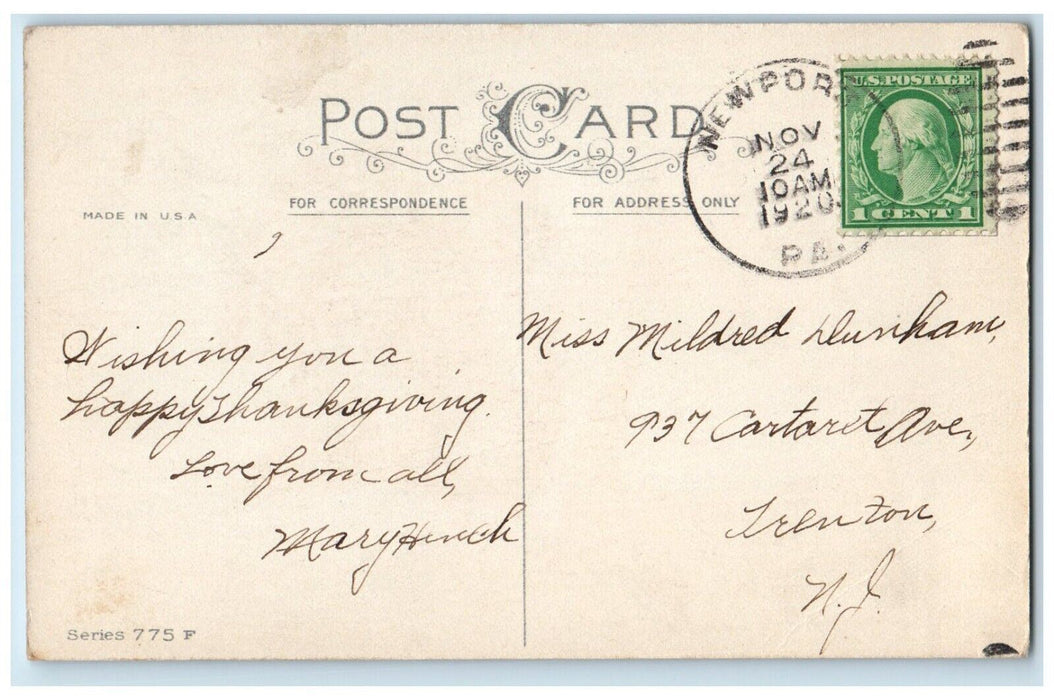 POST CARD
FOR CORRESPONDENCE
FOR ADDRESS ONLY
MADE IN U.S.A
NEWPORT
NOV
24
10AM
1920
PA.
U.S. POSTAGE
1 CENT 1
Wishing you a
happy Thanksgiving.
Love from all,
Mary Hench
Miss Mildred Dunham,
937 Cartaret Ave,
Trenton,
N.J.
Series 775 F